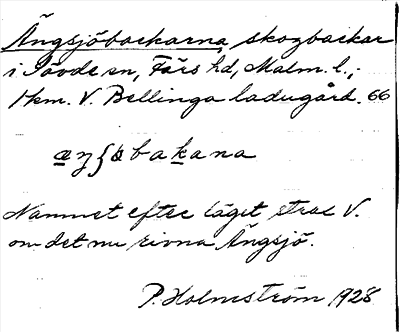 Ängsjöbackarna, skogbackar
i Sövde sn, Färs hd, Malm. l.,
1 km. V. Bellinga ladugård. 66
æŋʃöbakana
Namnet efter läget strax V.
om det nu rivna Ängsjö.
P. Holmström 1928